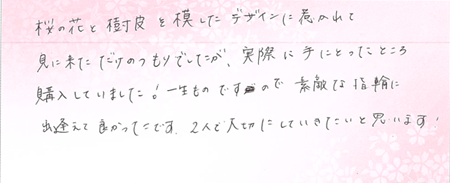 桜の花と樹皮を模したデザインに惹かれて
見に来ただけのつもりでしたが、実際に手にとったところ
購入していました！一生ものですので素敵な指輪に
出逢えて良かったです。2人で大切にしていきたいと思います！